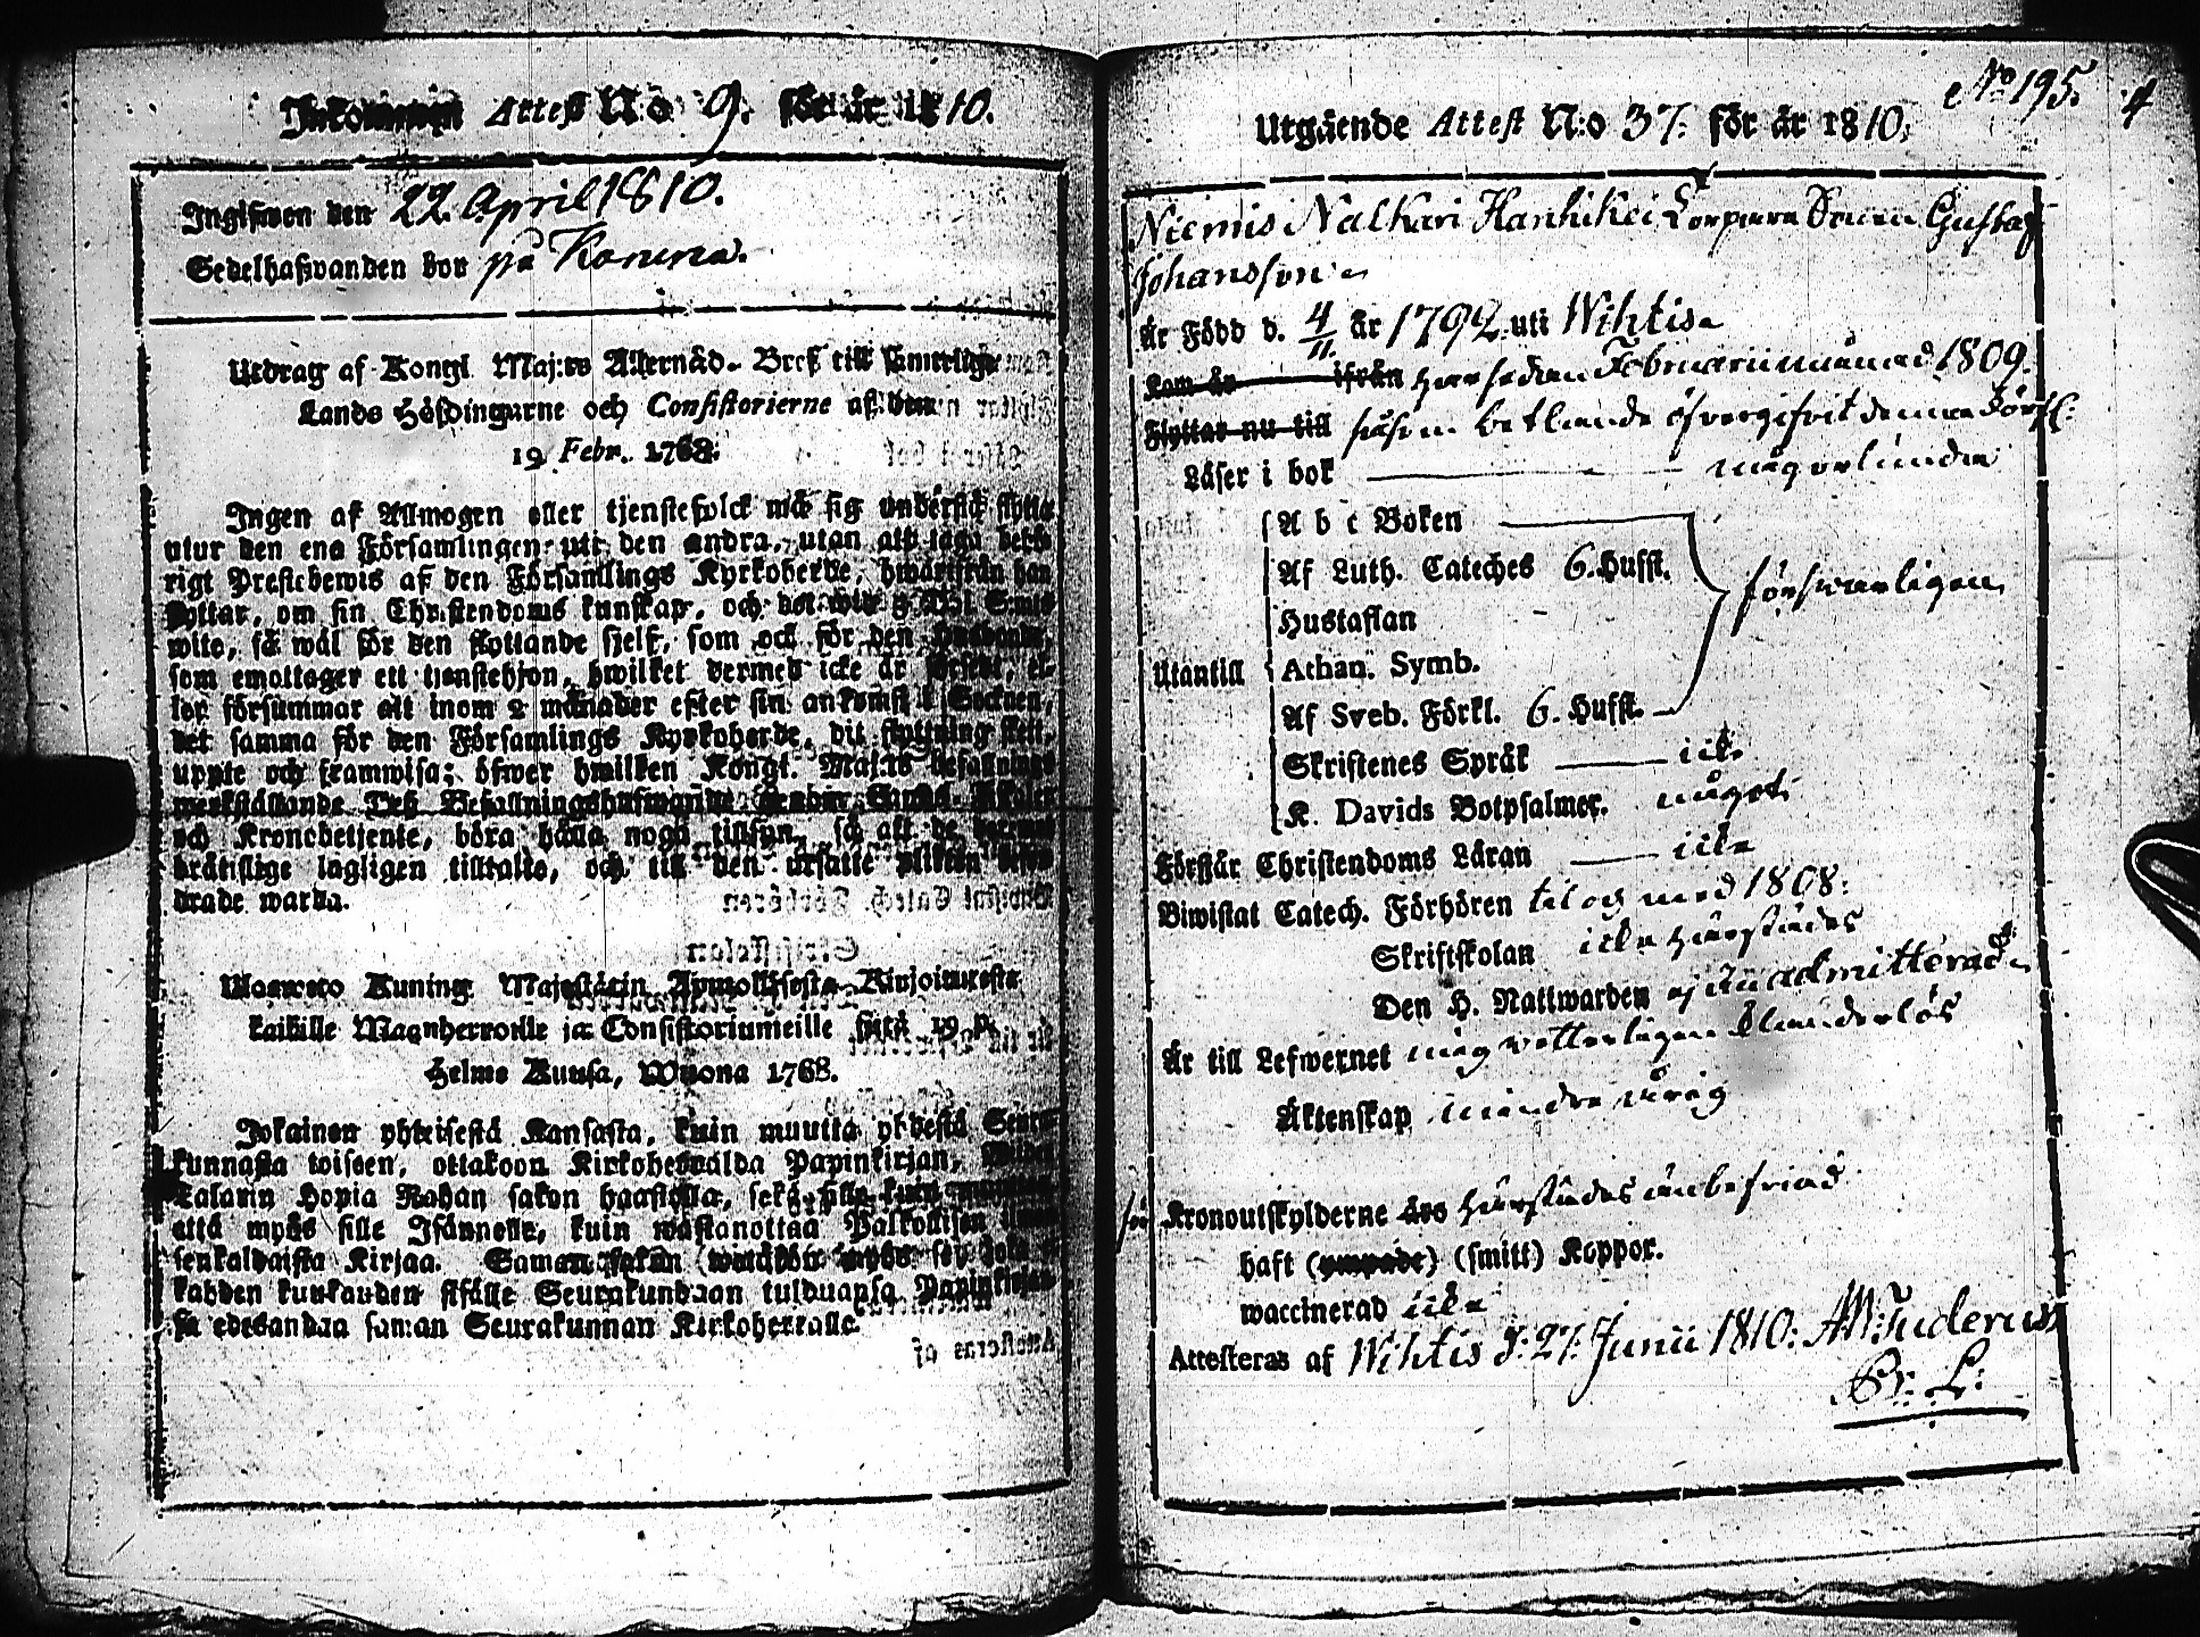 Inkommen Attest N:o 9. för år 1810.
Ingifwen den 22. April 1810.
Sedelhafwanden bor på Koruma.
Utdrag af Kongl. Maj:ts Allernåd. Bref till samtelige
Lands Höfdingarne och Consistorierne af den
19 Febr. 1768.
Ingen af Allmogen eller tjenstefolck må sig understå flytta
utur den ena Församlingen uti den andra, utan att taga behö
rigt Prestebewis af den Församlings Kyrkoherde, hwarifrån han
flyttar, om sin Christendoms kunskap, och det wid 3 Dal. S:mts
wite, så wäl för den flyttande sjelf, som ock för den Husbonde,
som emottager ett tjenstehjon, hwilket dermed icke är försedt, el-
ler försummar att inom 2 månader efter sin ankomst i Socknen,
det samma för den Församlings Kyrkoherde, dit flyttning skett,
uppte och framwisa; öfwer hwilken Kongl. Maj:ts befallnings
werkställande Deß Befallningshafwande
och Kronobetjente, böra hålla noga tillsyn, så att de
brätslige lagligen tilltalte, och till den utsatte plikten
drade warda.
Waaweto Kuning. Majestätin Armollisesta Kirjoituxesta
kaikille Maanherroille ja Consistoriumeille siitä 19. p.
Helme Kuusa, Wuona 1768.
Jokainen yhteisestä Kansasta, kuin muutta yhdestä Seura-
kunnasta toiseen, ottakoon Kirkoherralda Papinkirjan,
Talarin Hopia Rahan sakon haastolla, sekä sille kuin
että myös sille Isännelle, kuin wastanottaa Palkollisen ilman
senkaldaista Kirjaa. Saman sakon
kahden kuukauden sisälle Seurakundaan tulduansa Papinkirjan-
sa edesandaa saman Seurakunnan Kirkoherralle.
No 195. 4
Utgående Attest N:o 37. för år 1810.
Niemis Nalkari Hanhikei Torpare Sonen Gustaf
Johansson
Är Född d. 4/11 år 1792 uti Wihtis
Kom år ifrån har sedan Februarii månad 1809.
Flyttar nu till såsom betlande öfvergifvit denna Förs:
Läser i bok någorlunda
A b c Boken
Af Luth. Cateches 6. Hufst.
Hustaflan försvarligen
Utantill Athan. Symb.
Af Sveb. Förkl. 6. Hufst.
Skriftenes Språk icke
K. Davids Botpsalmer. något
Förstår Christendoms Läran icke
Biwistat Catech. Förhören til och med 1808:
Skriftskolan icke härstädes
Den H. Nattwarden ej än admitterad
Är till Lefwernet mig vetterligen klanderlös
Äktenskap mindre årig
för Kronoutskylderne års härstädes än befriad
haft (ympade) (smitt) Koppor.
waccinerad icke
Attesteras af Wihtis d: 27: Junii 1810: AW: Tuderus
Pr: L: